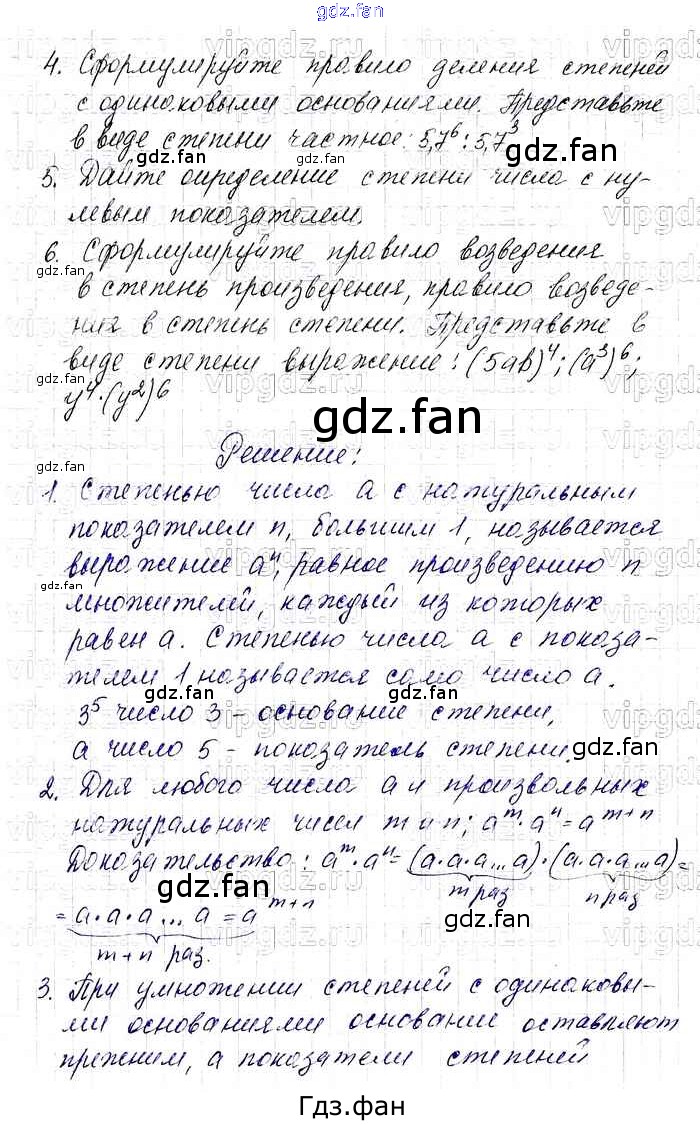 gdz.fan
4. Сформулируйте правило деления степеней
с одинаковыми основаниями. Представьте
в виде степени частное: 5,7⁶ : 5,7³
5. Дайте определение степени числа с ну-
левым показателем.
6. Сформулируйте правило возведения
в степень произведения, правило возведе-
ния в степень степени. Представьте в
виде степени выражение: (5ab)⁴; (a³)⁶;
y⁴·(y²)⁶
gdz.fan
Решение:
1. Степенью числа a с натуральным
показателем n, большим 1, называется
выражение aⁿ, равное произведению n
множителей, каждый из которых
равен a. Степенью числа a с показа-
телем 1 называется само число a.
3⁵ число 3 - основание степени,
а число 5 - показатель степени.
2. Для любого числа a и произвольных
натуральных чисел m и n: aᵐ·aⁿ = aᵐ⁺ⁿ
Доказательство: aᵐ·aⁿ = (a·a·a...a)·(a·a·a...a) =
m раз n раз
= a·a·a...a = aᵐ⁺ⁿ
m+n раз.
3. При умножении степеней с одинаковы-
ми основаниями основание оставляют
прежним, а показатели степеней
Гдз.фан